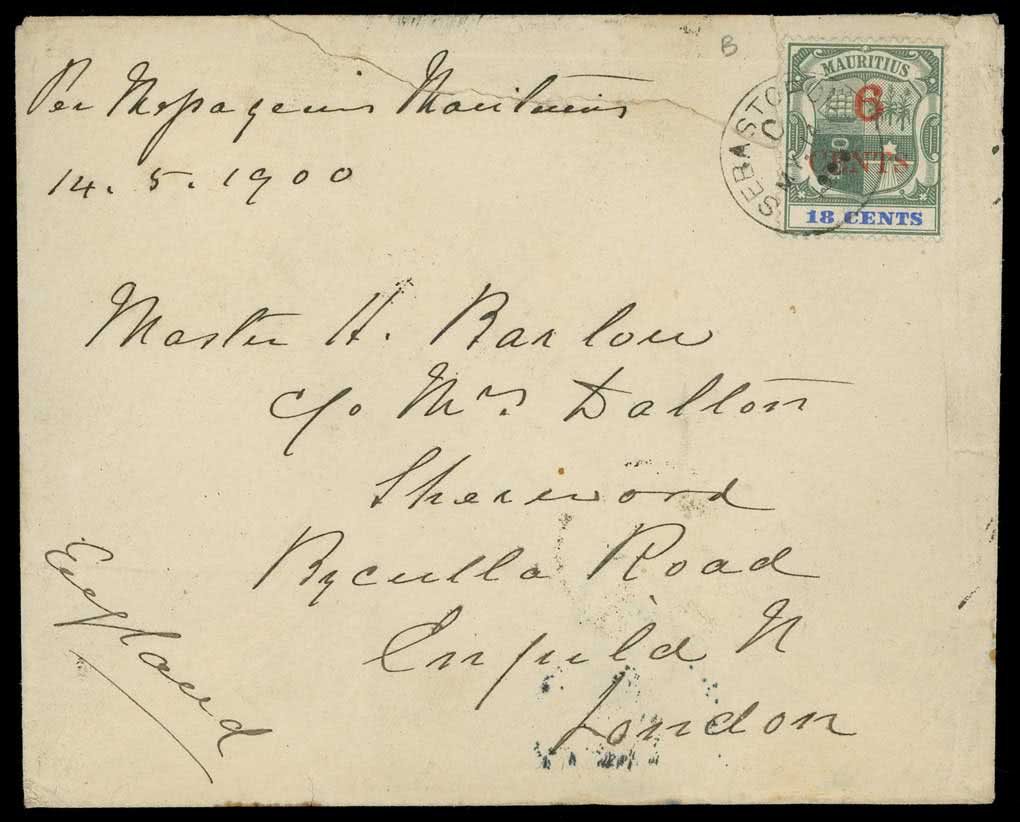 B
Per Messageries Maritimes
14. 5. 1900
MAURITIUS
6
CENTS
18 CENTS
SEBASTOPOL
Master H. Barlow
c/o Mrs. Dalton
Sherwood
Byculla Road
Enfield N
London
England